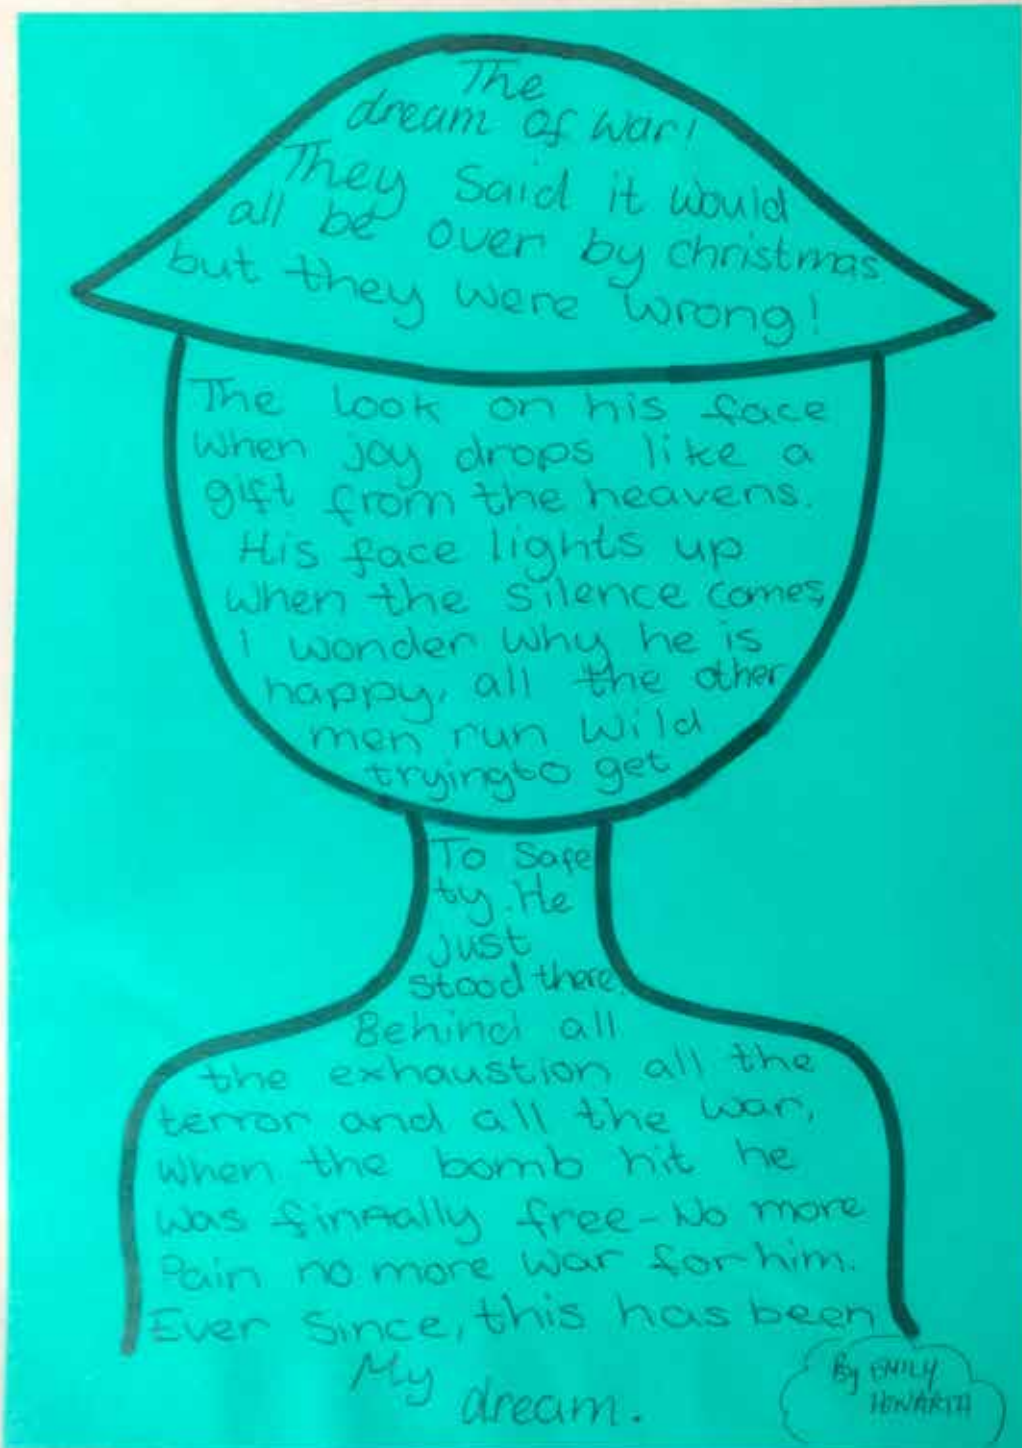 The
dream of war!
They Said it would
all be over by christmas
but they were wrong!
The look on his face
when joy drops like a
gift from the heavens.
His face lights up
when the silence comes,
I wonder why he is
happy, all the other
men run wild
tryingto get
To Safe
ty. He
just
stood there.
Behind all
the exhaustion all the
terror and all the war,
when the bomb hit he
was finally free - No more
Pain no more war for him.
Ever Since, this has been
My
dream.
By EMILY
HOWARTH